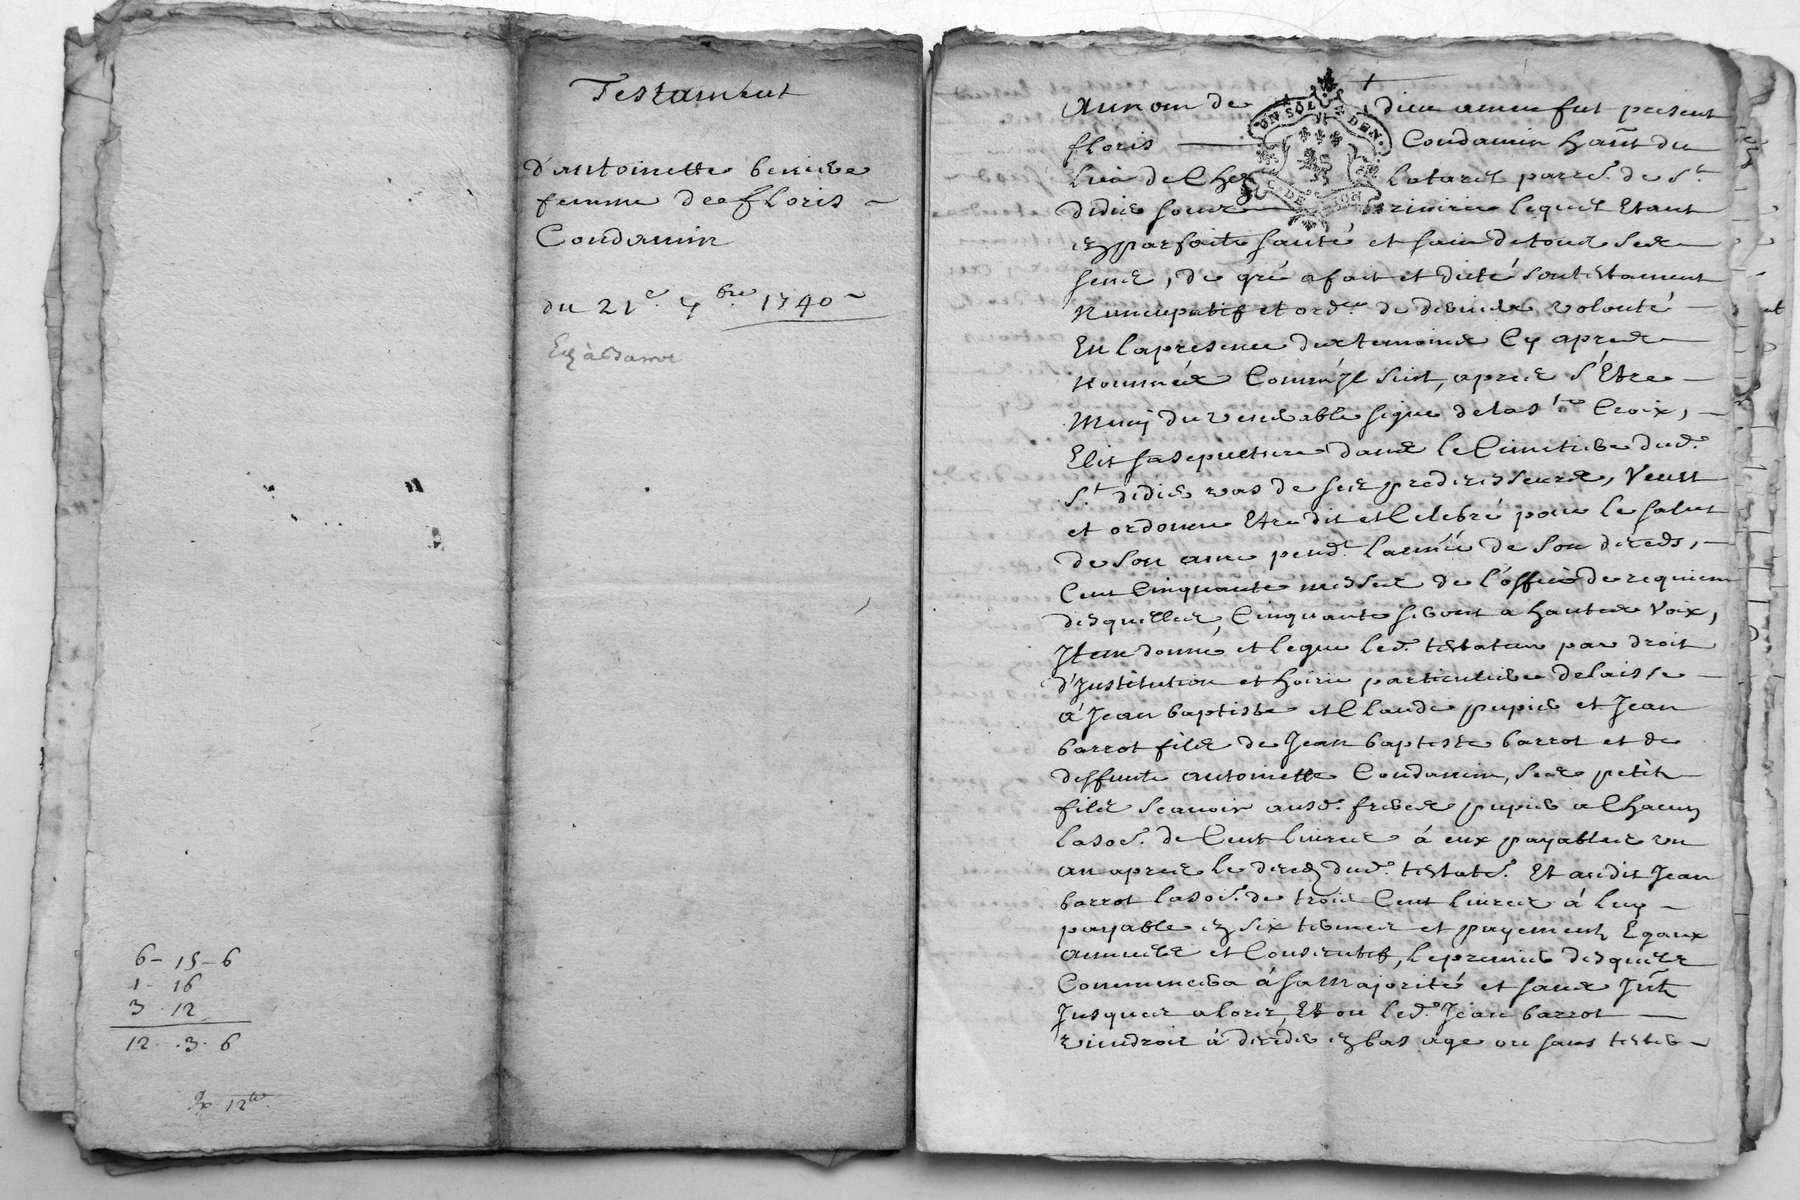 Testament
d'antoinette
femme de floris
Condamin
du 21e. 7bre. 1740
6 - 15 - 6
1 - 16
3 - 12
12 - 3 - 6
12
Au nom de dieu amen fut present
floris Condamin hant du
Lieu de Chez parre. de St
didier sous riviere lequel Etant
en parfaite santé et sain de tous ses
sens, de gré a fait et dicté son testament
Nuncupatif et ord.re de derniere volonté
En la presence des temoins Cy apres
Nommés Comm'jl suit, apres s'Etre
Muny du venerable signe de la Ste Croix,
Elit sa sepulture dans le Cimetiere dud.
St didier vas de ses predecesseurs, Veut
et ordonne Etre dit et Celebré pour le salut
de son ame pend.t l'année de son deceds,
Cent Cinquante messes de l'office de requiem
desquelles, Cinquante seront a hautes Voix,
Jtem donne et legue led. testateur par droit
d'Jnstitution et hoirie particuliere delaisse
à Jean baptiste et Claude pupier et Jean
barrot fils de Jean baptiste barrot et de
deffunte antoinette Condamin, ses petits
fils scavoir ausd. freres pupier a Chacun
la soe. de Cent livres à eux payables un
an apres le deceds dud. testatr. Et audit Jean
barrot la soe. de trois Cent livres à luy
payable en six termes et payements Egaux
annuels et Consecutifs, le premier desquels
Commencera à sa Majorité et sans Jnt
Jusques alors, Et ou led. Jean barrot
viendroit à deceder en bas age ou sans tester